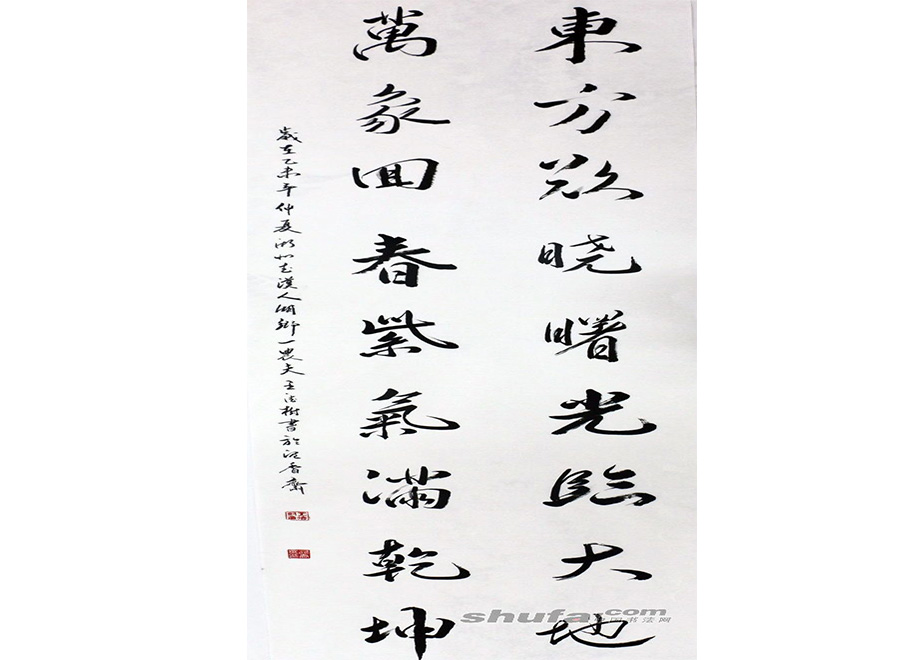 東方欲晓曙光臨大地
萬象回春紫氣滿乾坤
歲在乙未年仲夏湖北武漢人湖鄉一農夫王法樹書於沁香齋
shufa.com
中国书法网